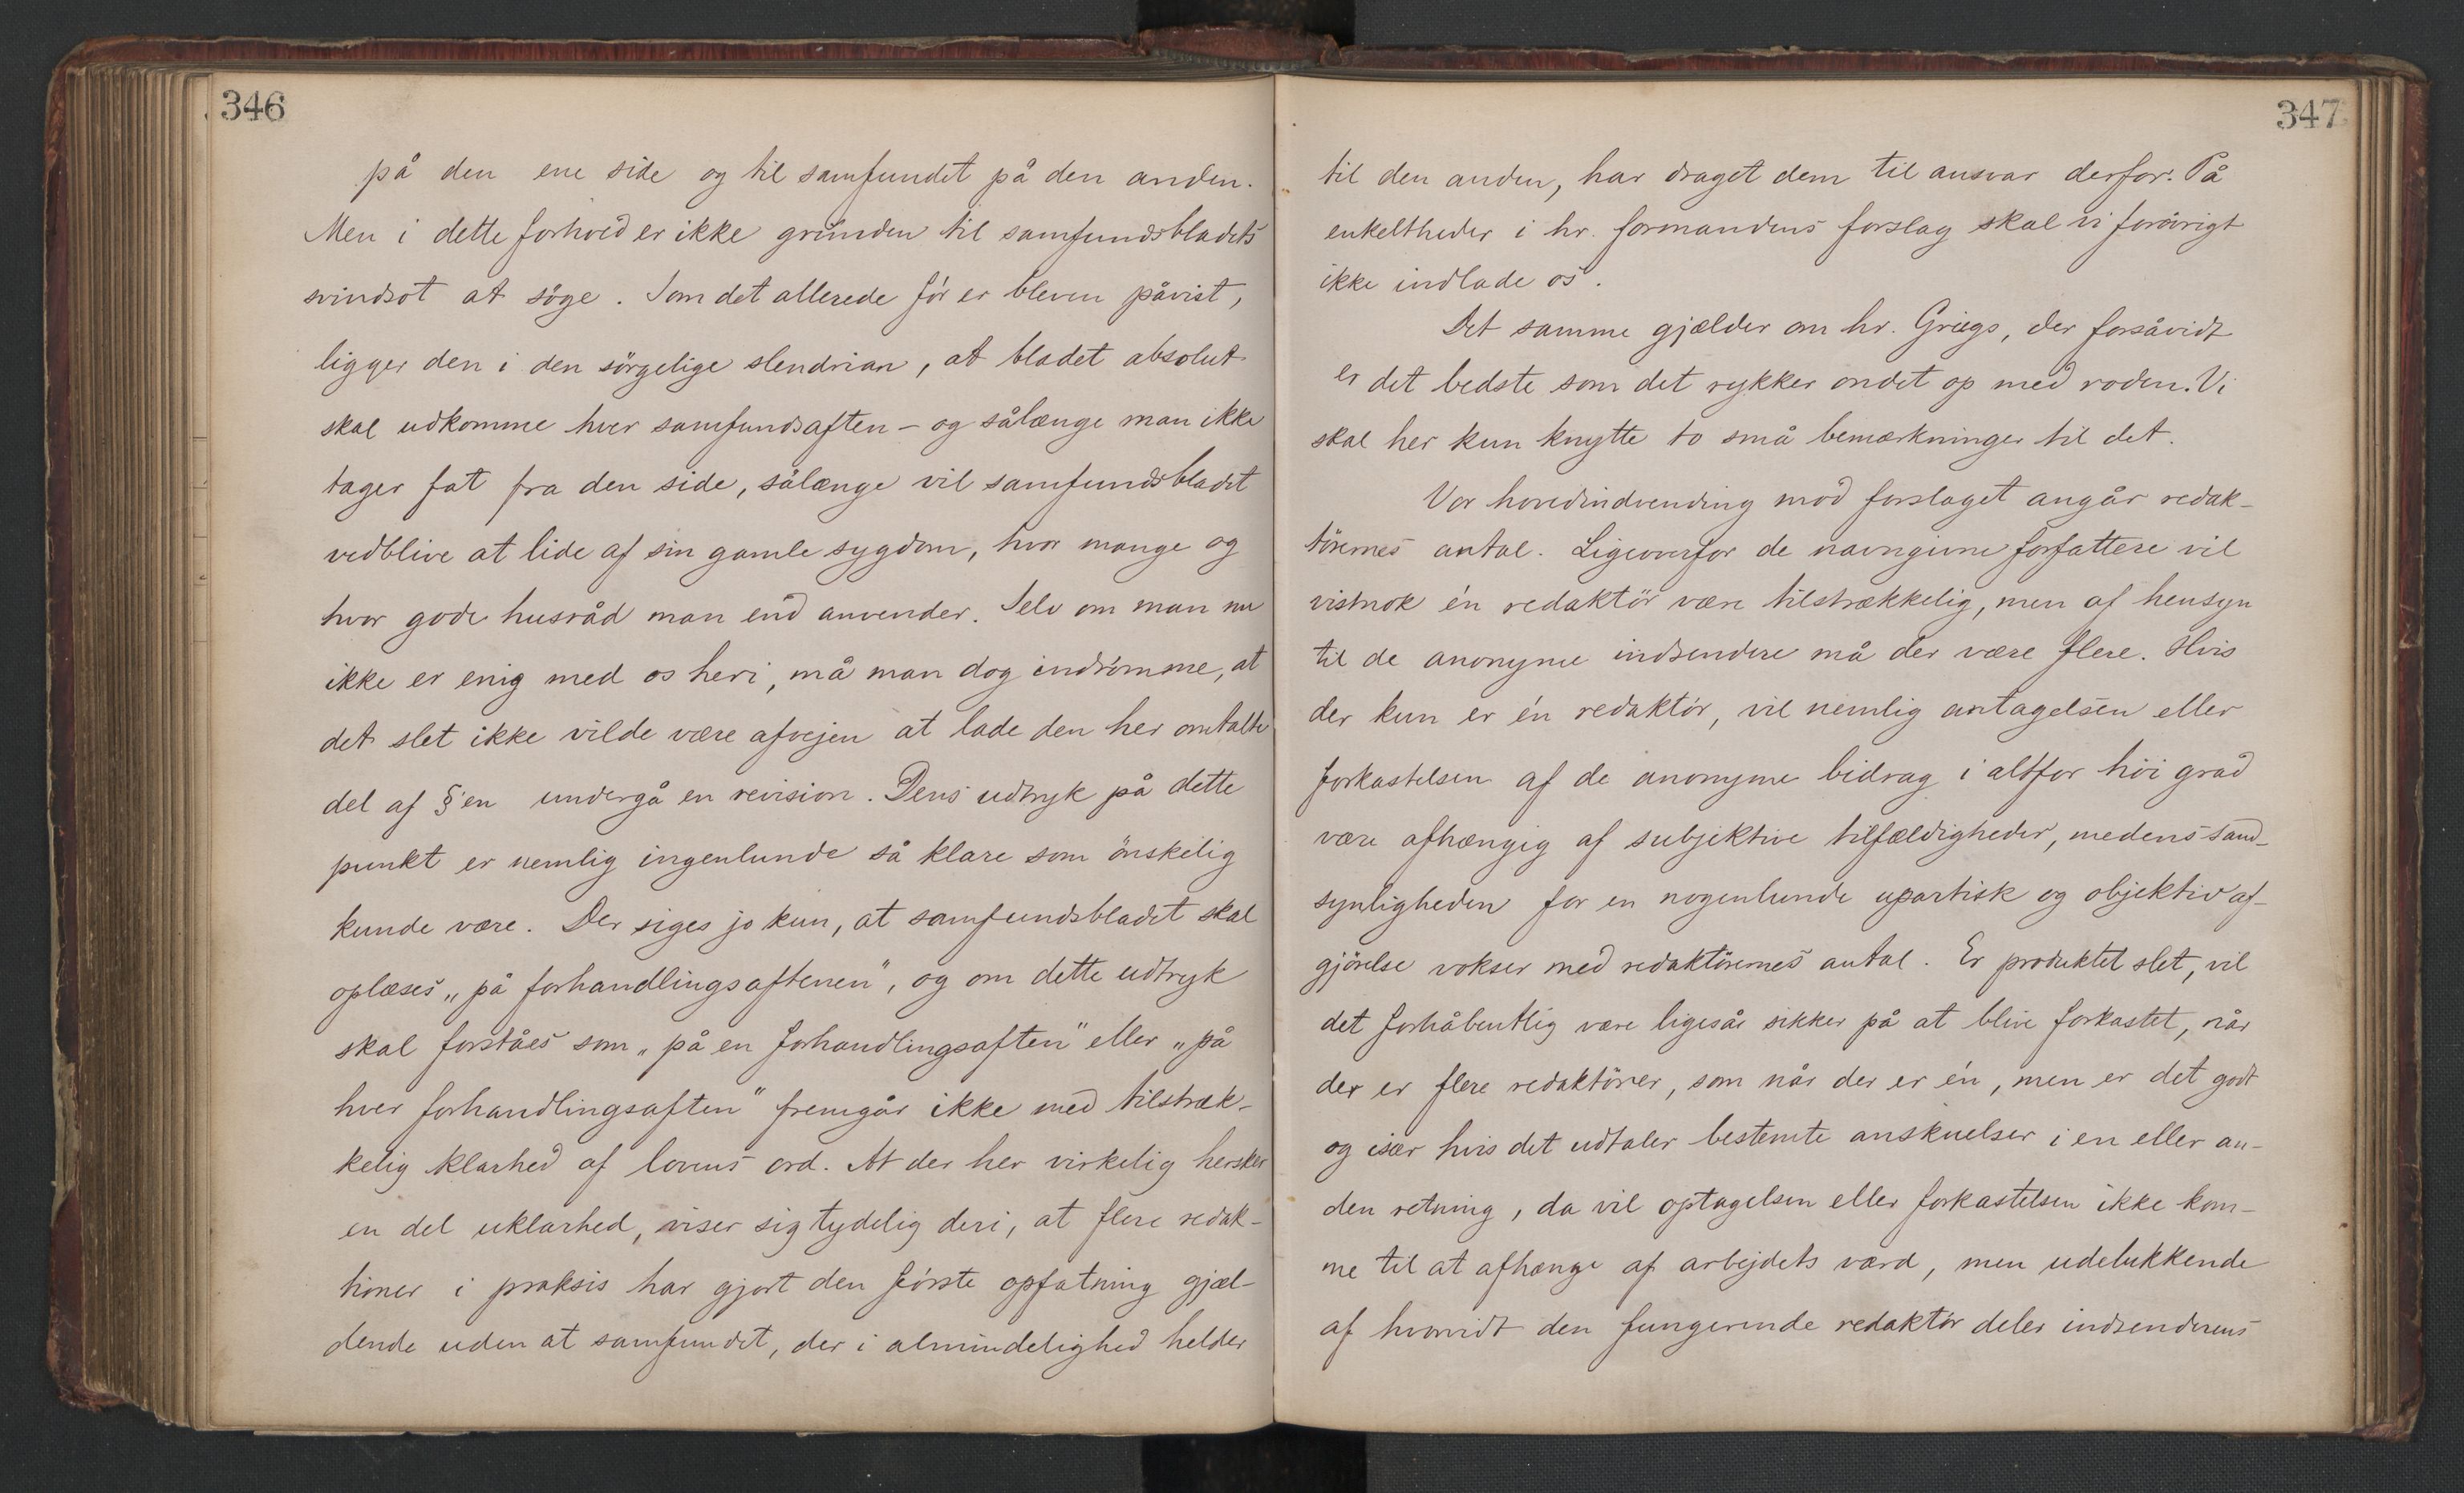 346
på den ene side og til samfundet på den anden.
Men i dette forhold er ikke grunden til samfundsbladets
svindsot at söge. Som det allerede för er bleven påvist,
ligger den i den sörgelige slendrian, at bladet absolut
skal udkomme hver samfundsaften – og sålænge man ikke
tager fat fra den side, sålænge vil samfundsbladet
vedblive at lide af sin gamle sygdom, hvor mange og
hvor gode husråd man end anvender. Selv om man nu
ikke er enig med os heri, må man dog indrömme, at
det slet ikke vilde være afvejen at lade den her omtalte
del af §'en undergå en revision. Dens udtryk på dette
punkt er nemlig ingenlunde så klare som önskelig
kunde være. Der siges jo kun, at samfundsbladet skal
oplæses „på forhandlingsaftenen", og om dette udtryk
skal forståes som „på en forhandlingsaften" eller „på
hver forhandlingsaften" fremgår ikke med tilstræk-
kelig klarhed af lovens ord. At der her virkelig hersker
en del uklarhed, viser sig tydelig deri, at flere redak-
tioner i praksis har gjort den förste opfatning gjæl-
dende uden at samfundet, der i almindelighed helder
347
til den anden, har draget dem til ansvar derfor. På
enkeltheder i hr. formandens forslag skal vi forövrigt
ikke indlade os.
Det samme gjælder om hr. Griegs, der forsåvidt
er det bedste som det rykker ondet op med roden. Vi
skal her kun knytte to små bemærkninger til det.
Vor hovedindvending mod forslaget angår redak-
törernes antal. Ligeoverfor de navngivne forfattere vil
vistnok én redaktör være tilstrækkelig, men af hensyn
til de anonyme indsendere må der være flere. Hvis
der kun er én redaktör, vil nemlig antagelsen eller
forkastelsen af de anonyme bidrag i altfor höi grad
være afhængig af subjektive tilfældigheder, medens sand-
synligheden for en nogenlunde upartisk og objektiv af-
gjörelse vokser med redaktörernes antal. Er produktet slet, vil
det forhåbentlig være ligeså sikker på at blive forkastet, når
der er flere redaktörer, som når der er én, men er det godt
og især hvis det udtaler bestemte anskuelser i en eller an-
den retning, da vil optagelsen eller forkastelsen ikke kom-
me til at afhænge af arbejdets værd, men udelukkende
af hvorvidt den fungerende redaktör deler indsenderens